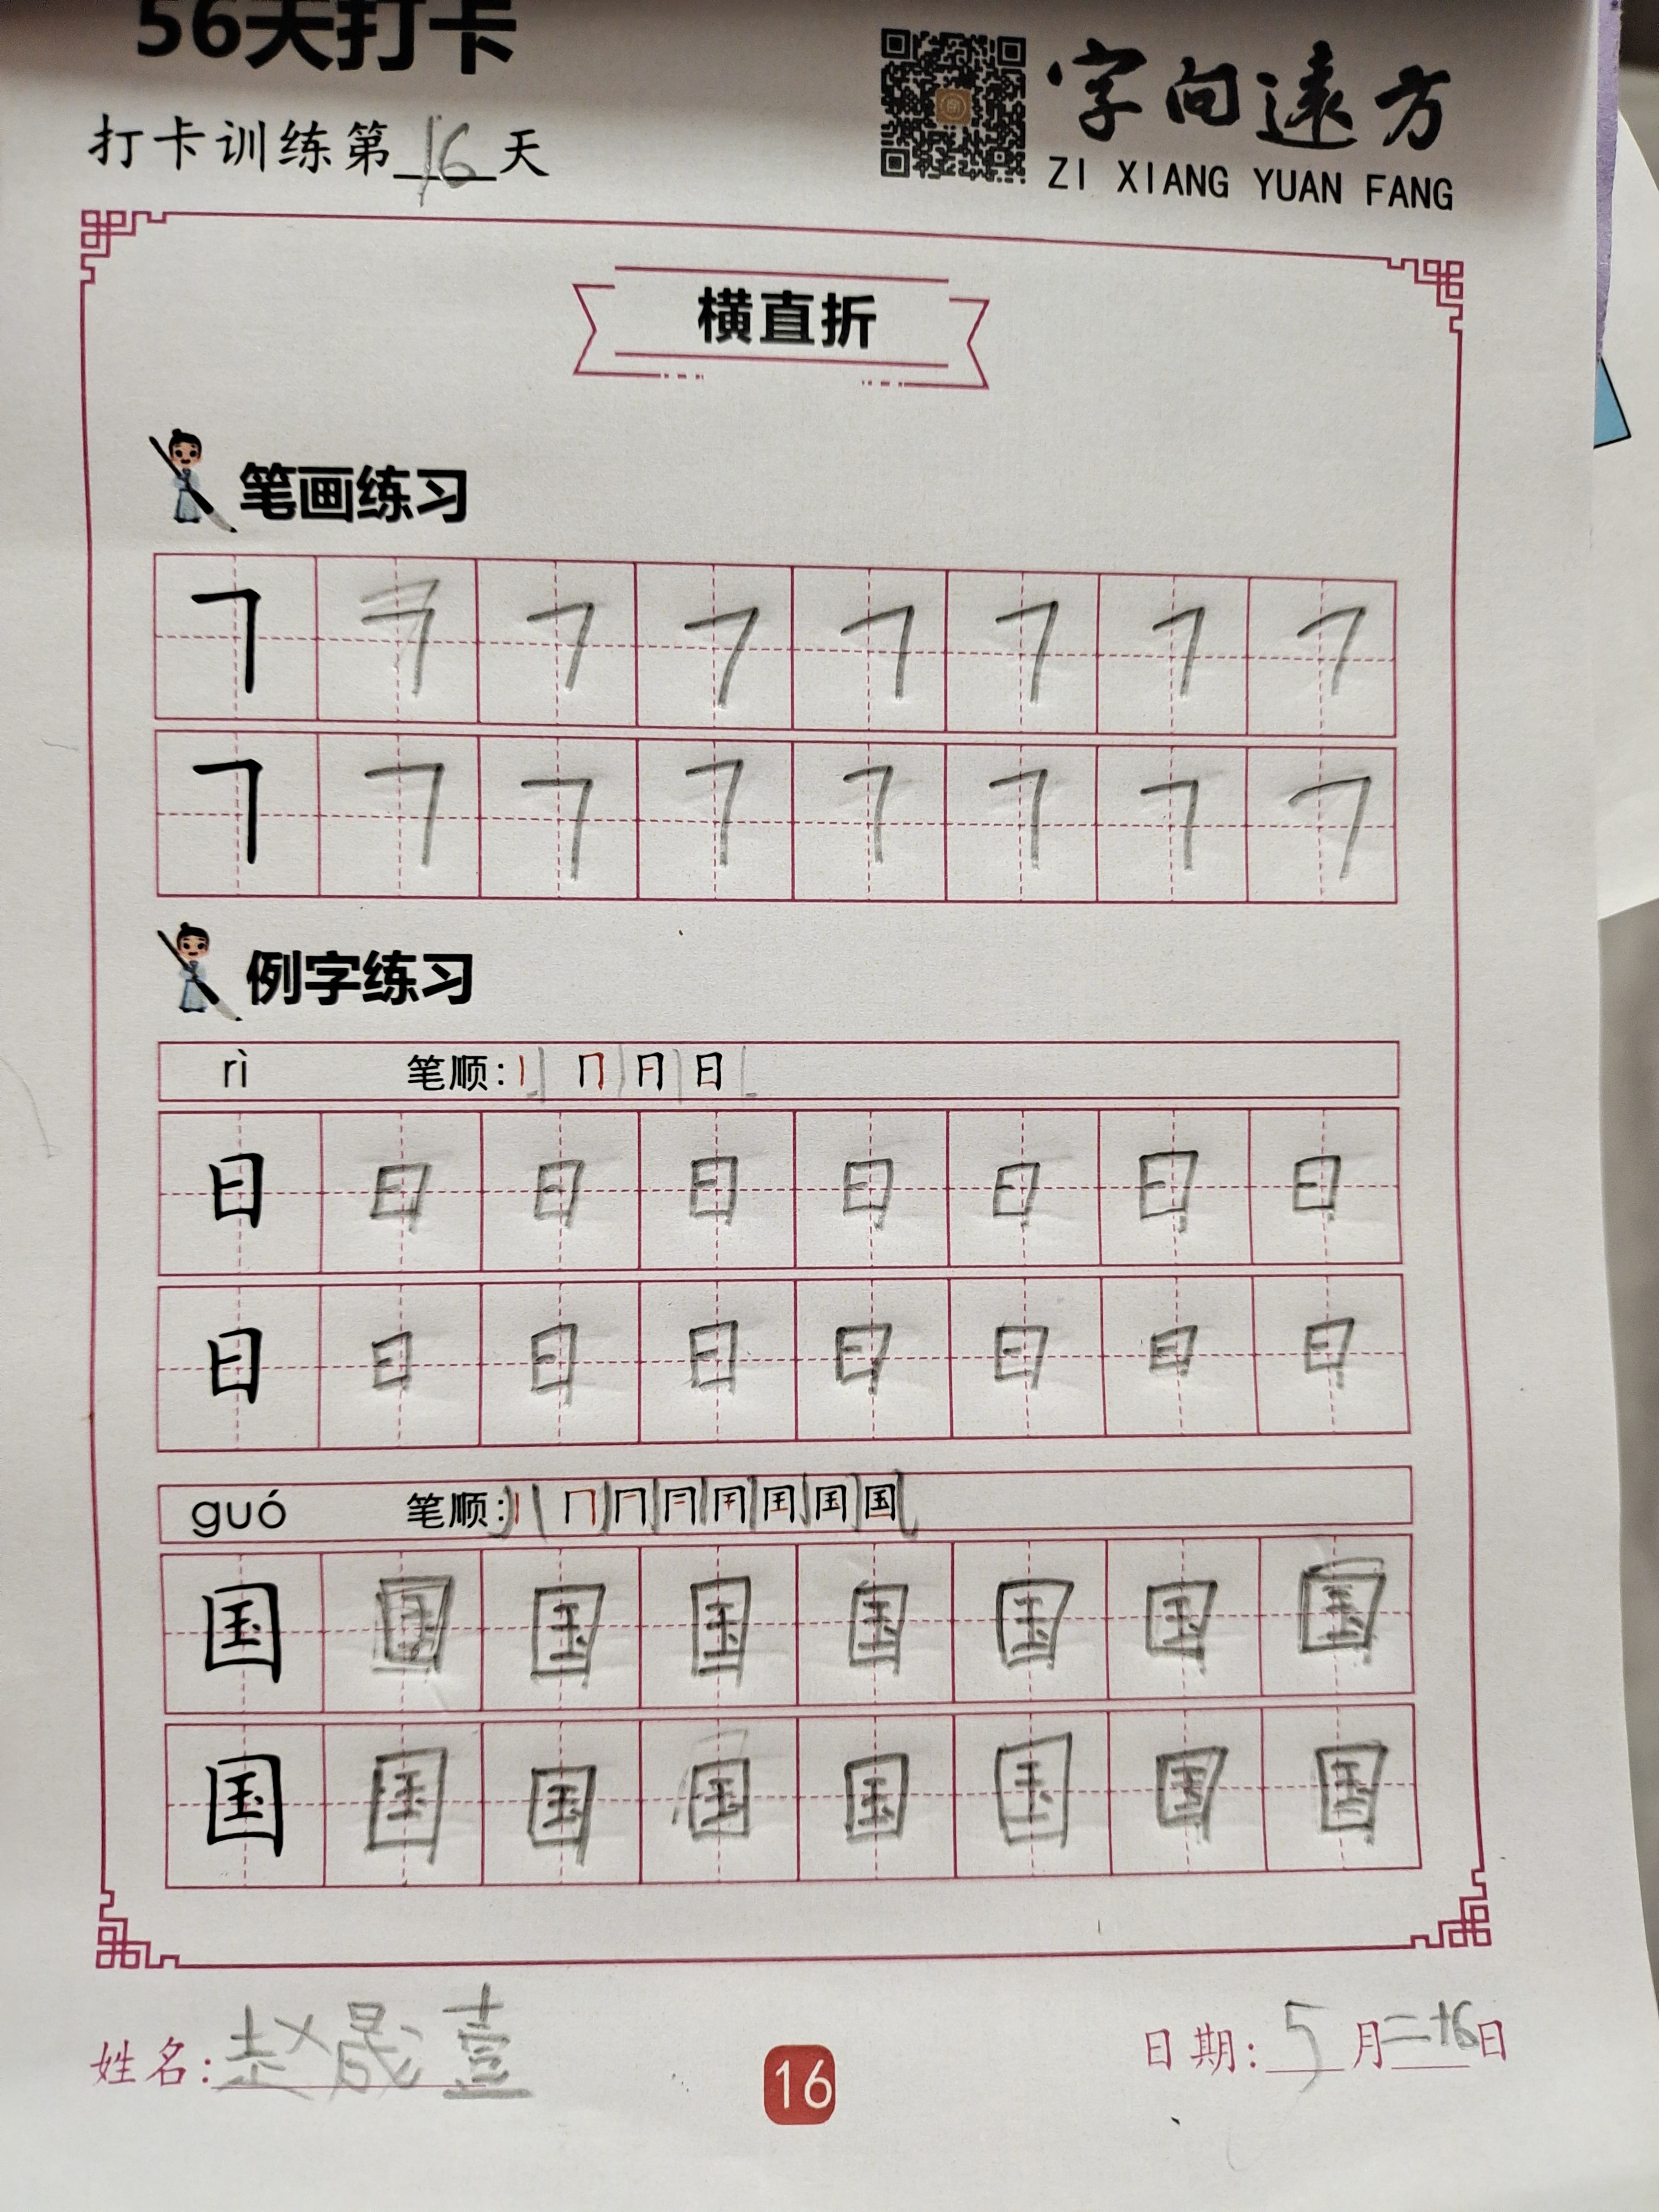 56天打卡
字向遠方
打卡训练第16天
ZI XIANG YUAN FANG
横直折
笔画练习
㇕ ㇕ ㇕ ㇕ ㇕ ㇕ ㇕ ㇕
㇕ ㇕ ㇕ ㇕ ㇕ ㇕ ㇕ ㇕
例字练习
rì 笔顺: 丨 冂 日
日 日 日 日 日 日 日 日
日 日 日 日 日 日 日 日
guó 笔顺: 丨 冂 国
国 国 国 国 国 国 国 国
国 国 国 国 国 国 国 国
姓名: 赵晟壹
日期: 5月二十6日
16